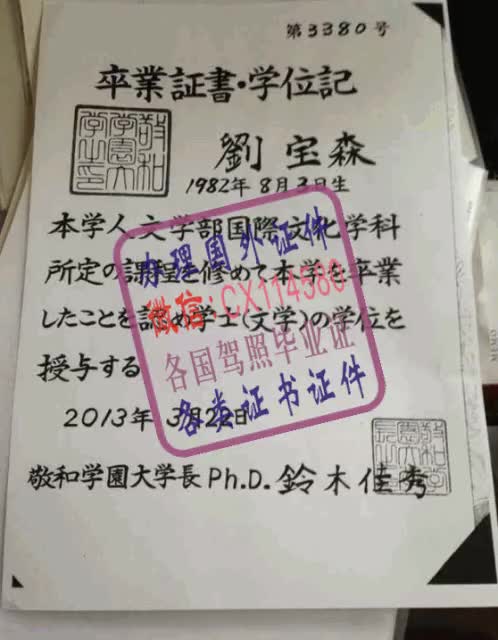 第3380号
卒業証書・学位記
敬和学園大学之印
劉宝森
1982年8月3日生
本学人文学部国際文化学科
所定の課程を修めて本学を卒業
したことを認め学士(文学)の学位を
授与する
2013年3月22日
敬和学園大学長Ph.D.鈴木佳秀
敬和学園大学長之印
办理国外证件
微信:CX114580
各国驾照毕业证
各类证书证件